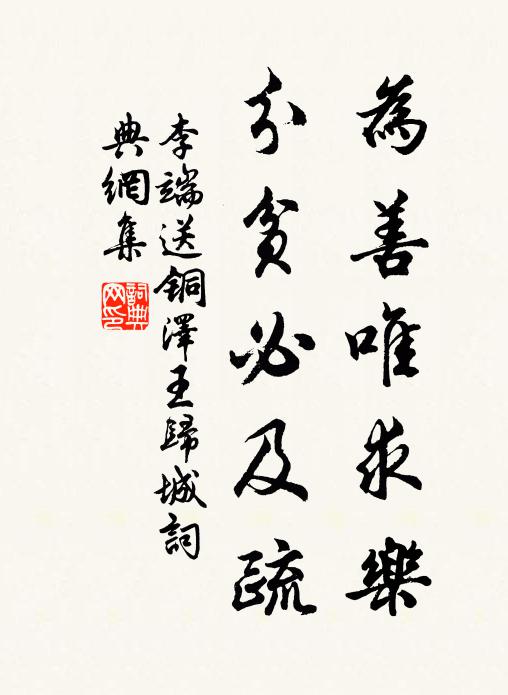 為善唯求樂
分貧必及疏
李端送銅澤王歸城詞
典網集
詞典網印